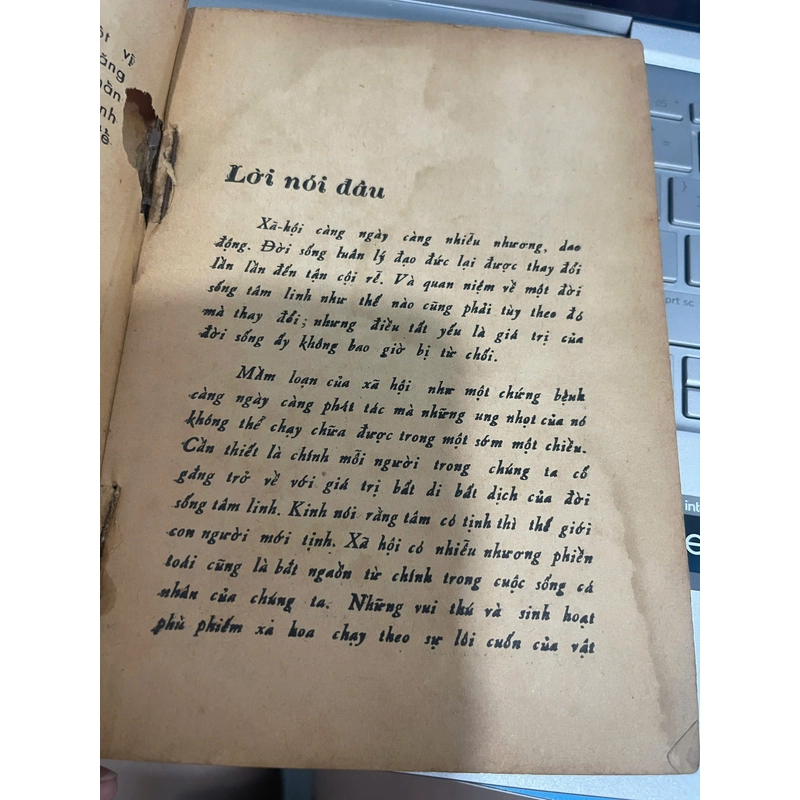 ột vị
ăng
hần
inh
về
Lời nói đầu
Xã-hội càng ngày càng nhiễu nhương, dao
động. Đời sống luân lý đạo đức lại được thay đổi
lần lần đến tận cội rễ. Và quan niệm về một đời
sống tâm linh như thế nào cũng phải tùy theo đó
mà thay đổi; nhưng điều tất yếu là giá trị của
đời sống ấy không bao giờ bị từ chối.
Mầm loạn của xã hội như một chứng bệnh
càng ngày càng phát tác mà những ung nhọt của nó
không thể chạy chữa được trong một sớm một chiều.
Cần thiết là chính mỗi người trong chúng ta cố
gắng trở về với giá trị bất di bất dịch của đời
sống tâm linh. Kinh nói rằng tâm có tịnh thì thế giới
con người mới tịnh. Xã hội có nhiễu nhương phiền
toái cũng là bắt nguồn từ chính trong cuộc sống cá
nhân của chúng ta. Những vui thú và sinh hoạt
phù phiếm xa hoa chạy theo sự lôi cuốn của vật
prt sc